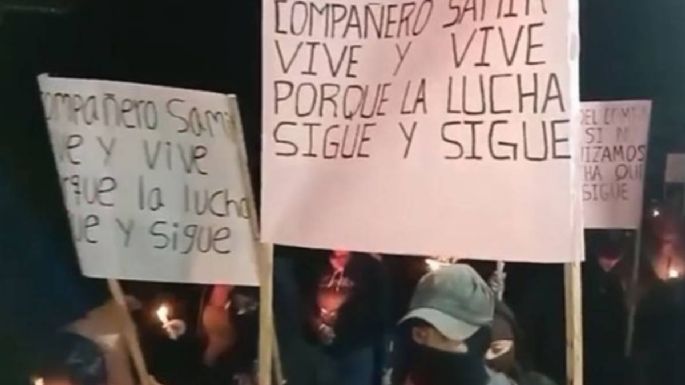 COMPAÑERO SAMIR
VIVE Y VIVE
PORQUE LA LUCHA
SIGUE Y SIGUE
ompAÑero Sami
ve y vive
rque la lucha
ue y sigue
DEL COMP
SI N
IZAMOS
HA QUE
SIGUE